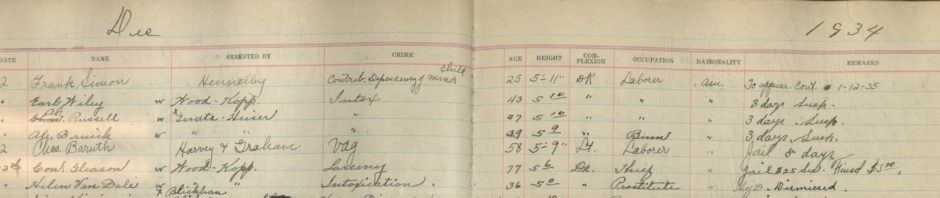 Dec 1934
DATE NAME ARRESTED BY CRIME AGE HEIGHT COMPLEXION OCCUPATION NATIONALITY REMARKS
2 Frank Simon Contrib. Dependency of minor child 25 5-11" DK Laborer Am To appear Court 1-12-35
" Earl Wiley w Wood-Kopp. Intox 43 5 10 " " " 3 days Susp.
" Russell w " 27 5 10 " " " 3 days Susp.
" w " " " 29 5 9 " Bum " 3 days Susp.
2 Chas. Baruth w Harvey & Graham Vag 58 5-9" Lt. Laborer " Jail 8 days
Gleason w Wood-Kopp. Larceny 77 5 6 Dk. Thief " Jail Fined $5.00.
" Helen Van Dale w " " Intoxication. 36 5 0 " Prostitute " Dismissed.